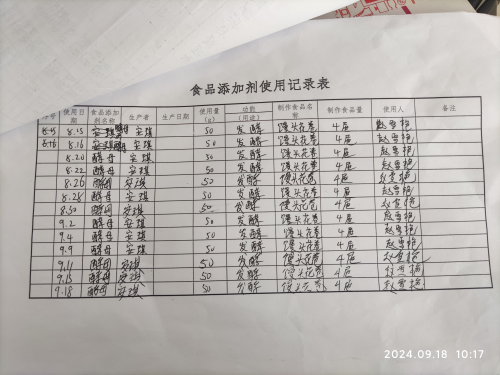 食品添加剂使用记录表
序号 使用日期 食品添加剂名称 生产者 生产日期 使用量(g) 功能(用途) 制作食品名称 制作食品量 使用人 备注
8.15 酵母 安琪 50 发酵 馒头花卷 4屉
8.16 8.16 酵母 安琪 50 发酵 馒头花卷 4屉
8.20 酵母 安琪 50 发酵 馒头花卷 4屉
8.22 酵母 安琪 50 发酵 馒头花卷 4屉
8.26 酵母 安琪 50 发酵 馒头花卷 4屉
8.28 酵母 安琪 50 发酵 馒头花卷 4屉
8.30 酵母 安琪 50 发酵 馒头花卷 4屉
9.2 酵母 安琪 50 发酵 馒头花卷 4屉
9.4 酵母 安琪 50 发酵 馒头花卷 4屉
9.9 酵母 安琪 50 发酵 馒头花卷 4屉
9.11 酵母 安琪 50 发酵 馒头花卷 4屉
9.15 酵母 安琪 50 发酵 馒头花卷 4屉
9.18 酵母 安琪 50 发酵 馒头花卷 4屉
2024.09.18 10:17